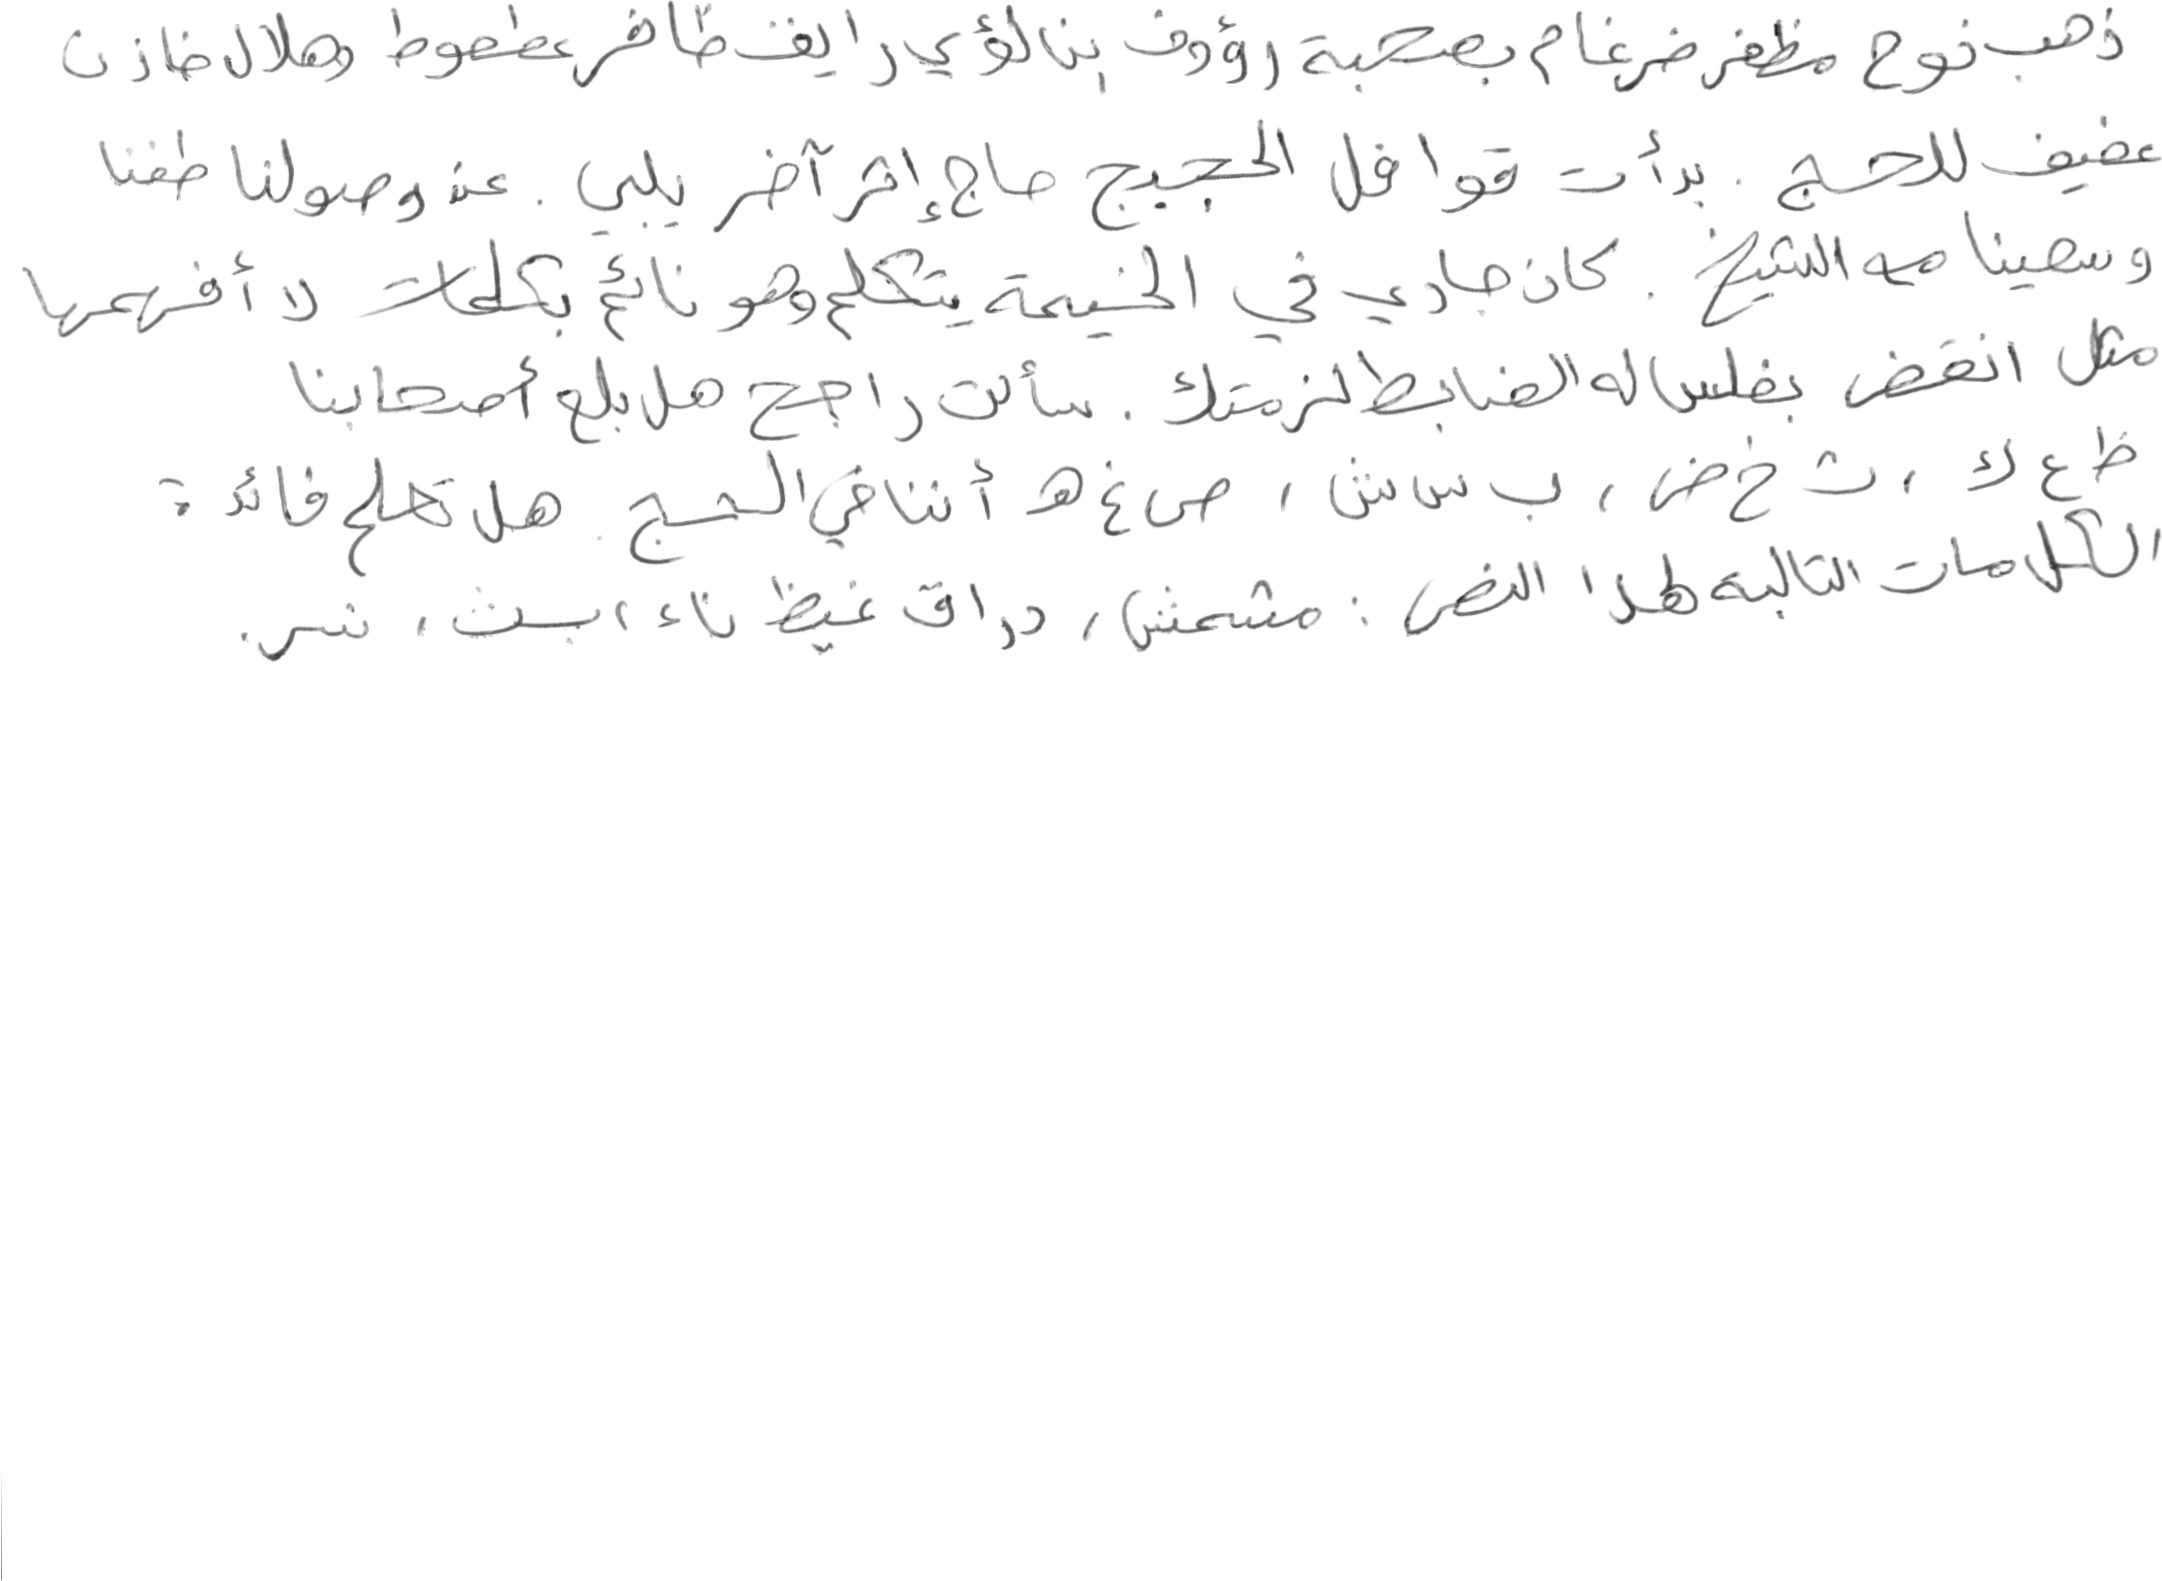 ذهب نوح مظفر ضرغام بصحبة رؤوف بن لؤي رايف ظافر عطعوط وهلال خازن
عفيف للحج. بدأت قوافل الحجيج حاج إثر آخر يلبي. عند وصولنا طفنا
وسعينا مع الشيخ. كان جاري في الخيمة يتكلم وهو نائم بكلمات لا أفهمها
مثل انقض بفلس له الضابط لزمتك. سألت راجح هل بلع أصحابنا
ظ ع ك، ث خ ض، ب س ش، ص غ ه أثناء الحج. هل تعلم فائدة
الكلمات التالية لهذا النص: مشمش، دراق غيظ ناء، بث، نسر.